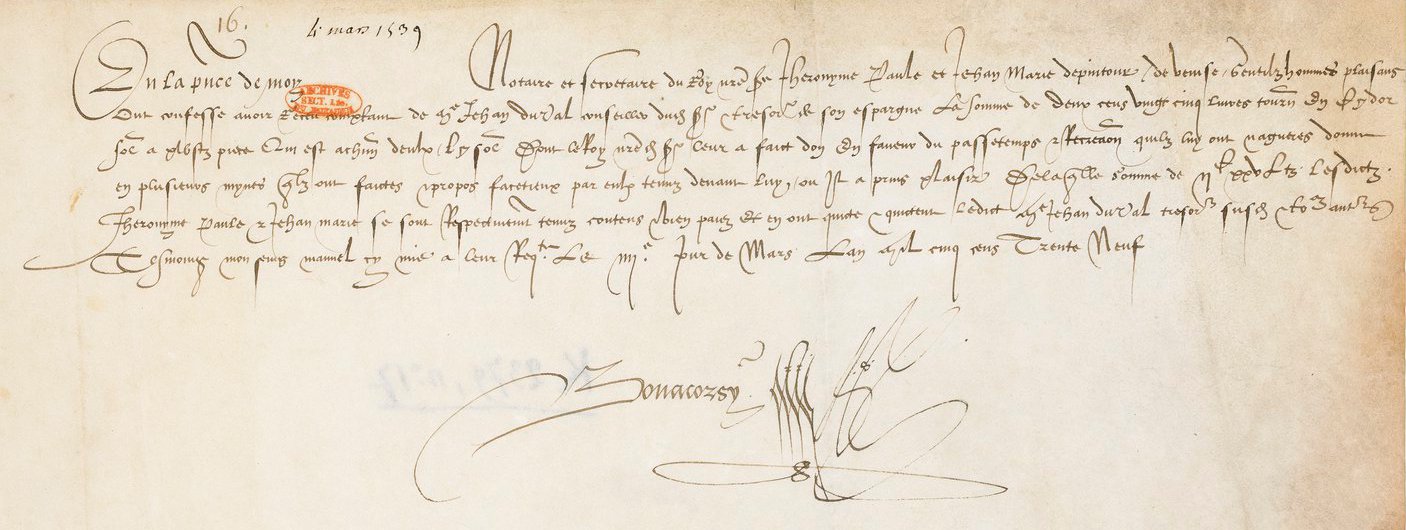 16.
4 mars 1539
En la pñce de moy Notaire et secretaire du Roy nrẽ Sr Jheronyme Paule et Jehan Marie depintour / de venise / Gentilzhommes plaisans
ARCHIVES
SECT. LEG.
Ont confesse avoir Receu comptant de Me Jehan duVal conseiller dudict Sr et tresorier de son espargne La somme de deux cens vingt cinq livres tourn En Or
piece Qui est a chacun deulx Dont le Roy nrẽd Sr leur a faict don En faveur du passetemps et Recreacion quilz luy ont nagueres donne
en plusieurs mynes quilz ont faictes et propos facetieux par eulx tenuz devant luy, ou Il a prins plaisir De laquelle somme de ijc xxv Ltz Lesdictz
Jheronyme Paule et Jehan marie se sont Respectivement tenuz contens et bien paiez Et en ont quicte et quictent ledict Me Jehan duVal tresorier susd
Tesmoing mon seing manuel cy mis a leur Reqte Le iiije Jour de Mars Lan Mil cinq cens Trente Neuf
Bonacorsy